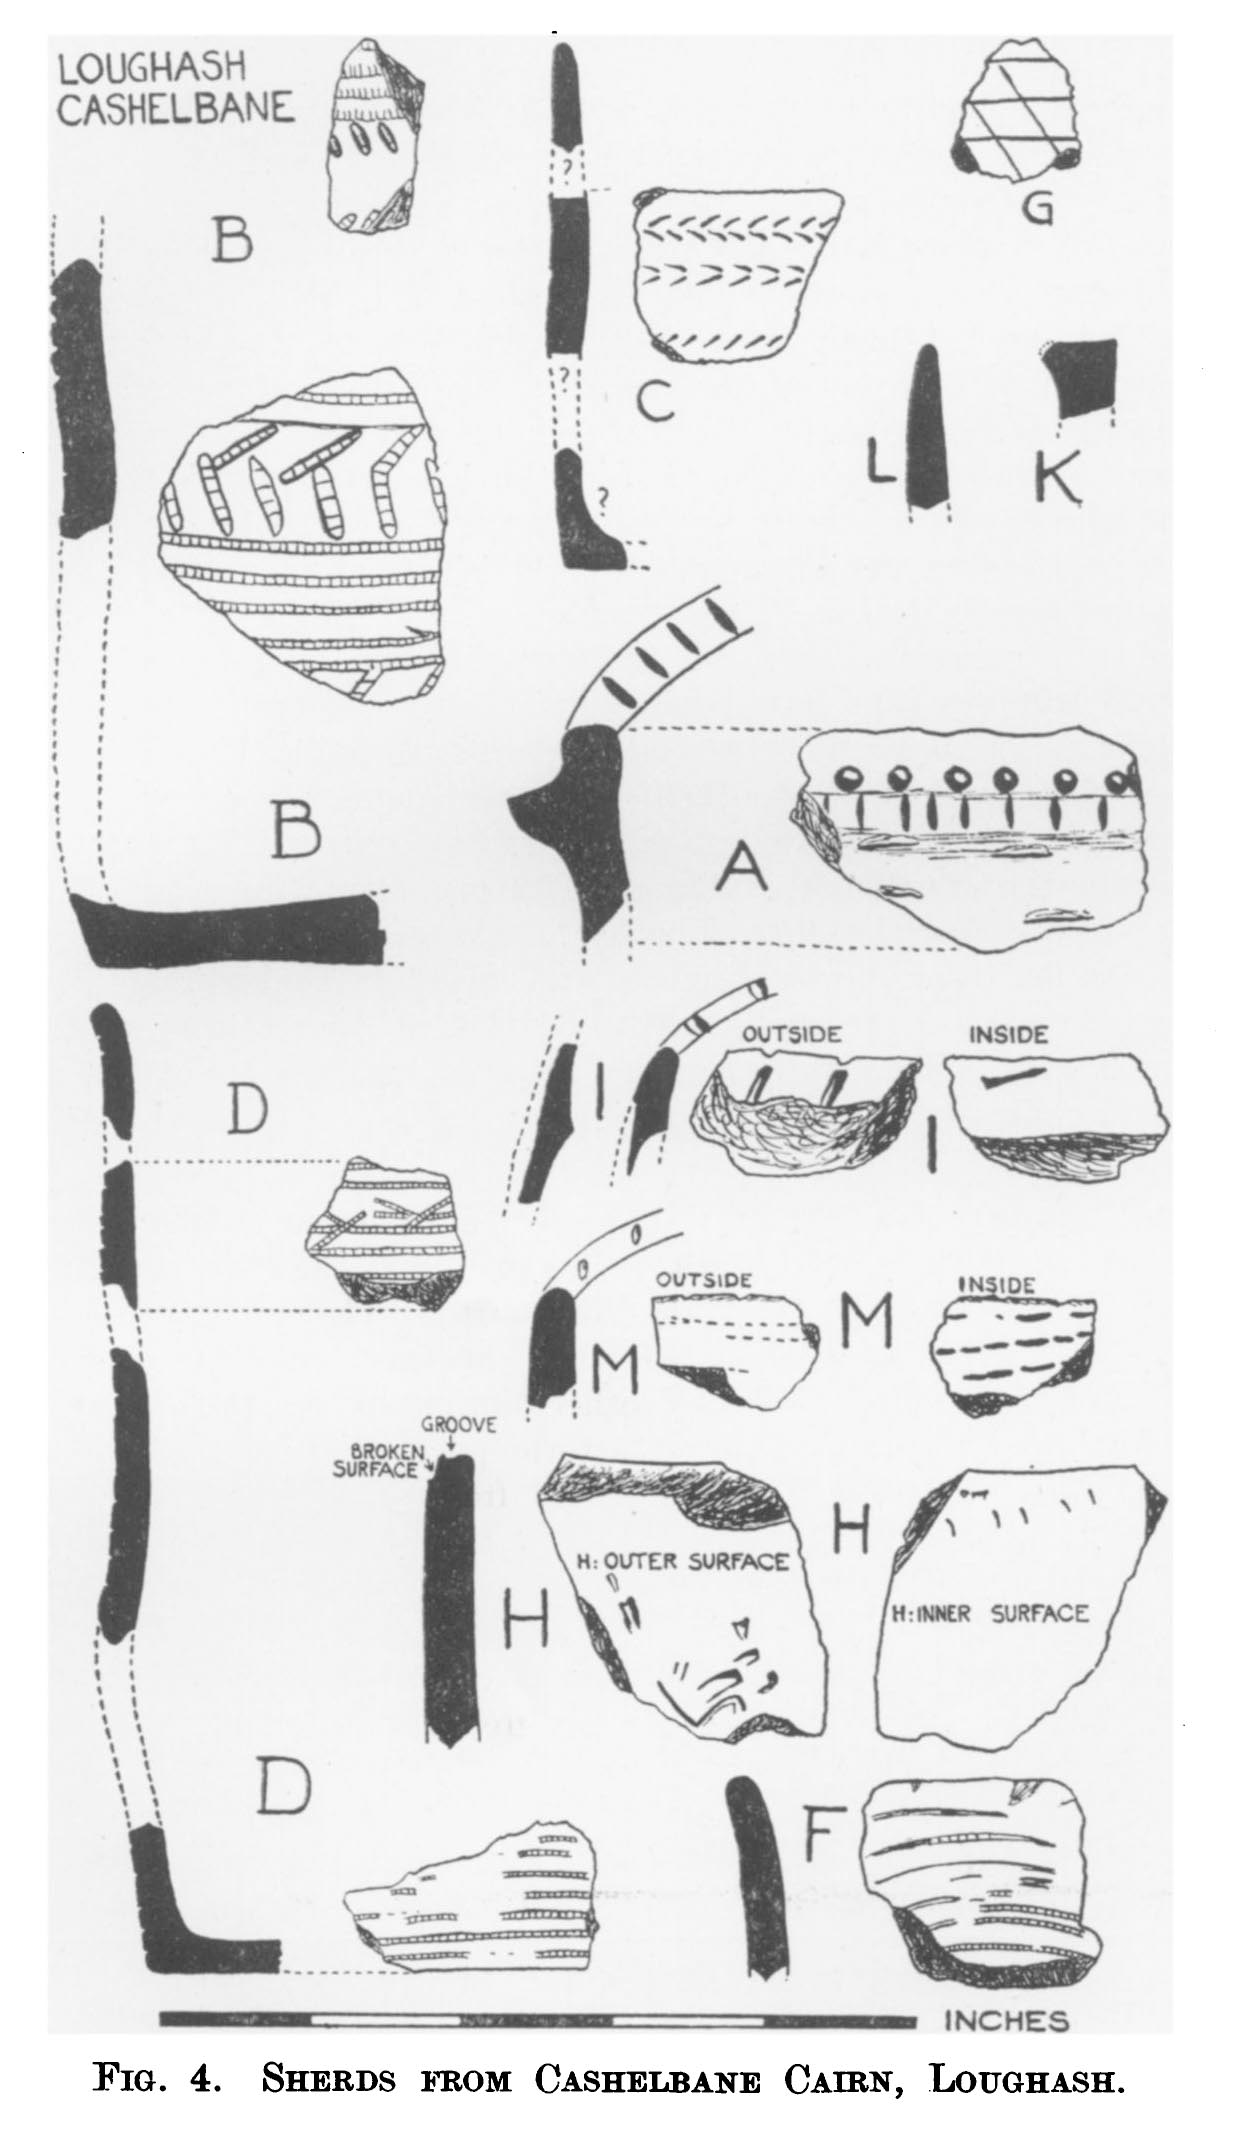 LOUGHASH
CASHELBANE
B
?
G
C
?
L
K
?
B
A
D
I
OUTSIDE
INSIDE
I
OUTSIDE
M
INSIDE
M
GROOVE
BROKEN
SURFACE
H
H: OUTER SURFACE
H
H: INNER SURFACE
D
F
INCHES
FIG. 4. SHERDS FROM CASHELBANE CAIRN, LOUGHASH.